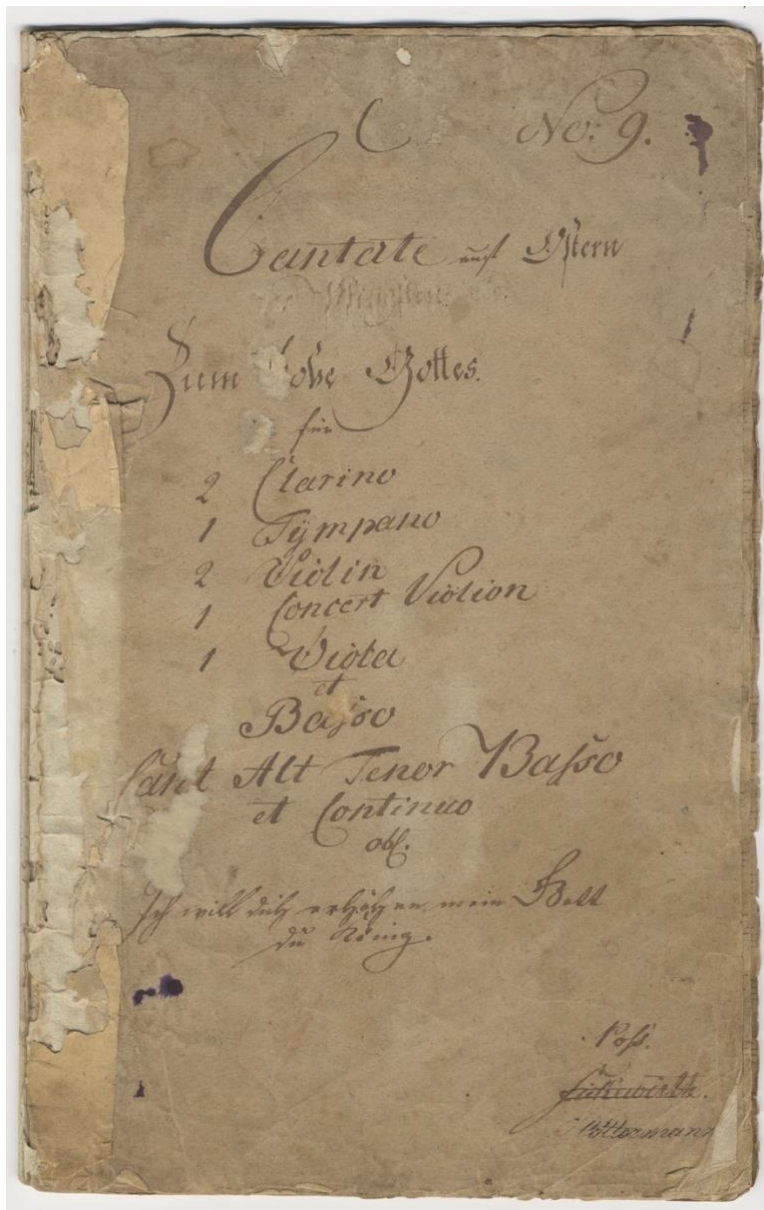 C No: 9.
Cantate auf Ostern
Zum Lobe Gottes.
für
2 Clarino
1 Tÿmpano
2 Violin
1 Concert Violion
1 Viola
et
Basso
Cant Alt Tenor Basso
et Continuo
obl.
Ich will dich erhöhen mein Gott
du König.
Poss.